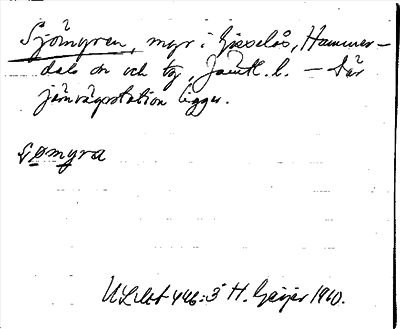 Sjömyren, myr i Gisselås, Hammer-
dals sn och tg, Jämtl. l. – Där
järnvägsstation ligger.
sømyra
ULAcc 446:3 H. Geijer 1910.